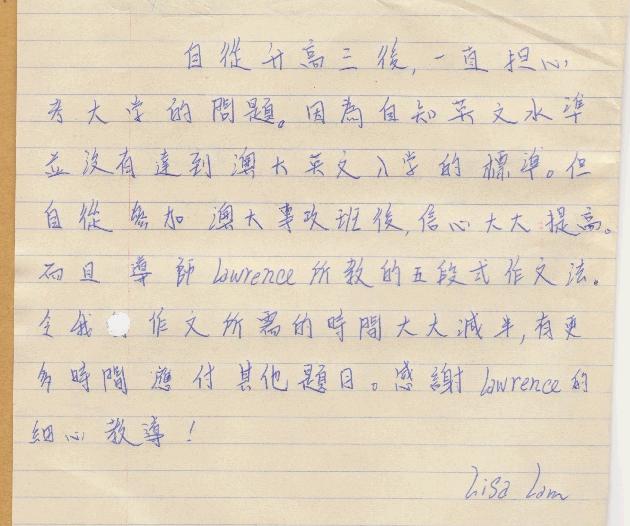 自從升高三後,一直担心
考大学的問題。因為自知英文水準
並沒有達到澳大英文入学的標準。但
自從參加澳大專攻班後,信心大大提高。
而且導師Lawrence所教的五段式作文法。
令我作文所需的時間大大減半,有更
多時間應付其他題目。感謝Lawrence的
細心教導!
Lisa Lam